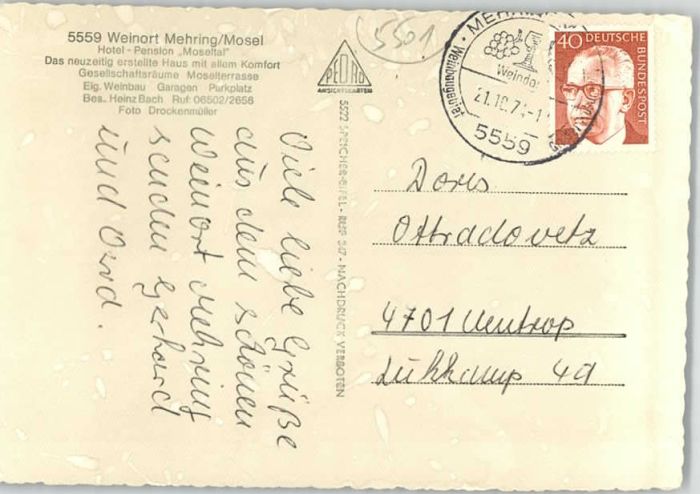 5559 Weinort Mehring/Mosel
Hotel - Pension „Moseltal"
Das neuzeitig erstellte Haus mit allem Komfort
Gesellschaftsräume Moselterrasse
Eig. Weinbau Garagen Parkplatz
Bes. Heinz Bach Ruf: 06502/2656
Foto Drockenmüller
5501
ANSICHTSKARTEN
5522 SPEICHER-EIFEL - RUF 347 - NACHDRUCK VERBOTEN
MEHRING
Weindorf
21.10.7
5559
40 DEUTSCHE
BUNDESPOST
Viele liebe Grüße
aus dem schönen
Weinort Mehring
senden Gerhard
und
Doris
Ottradovetz
4701
4a